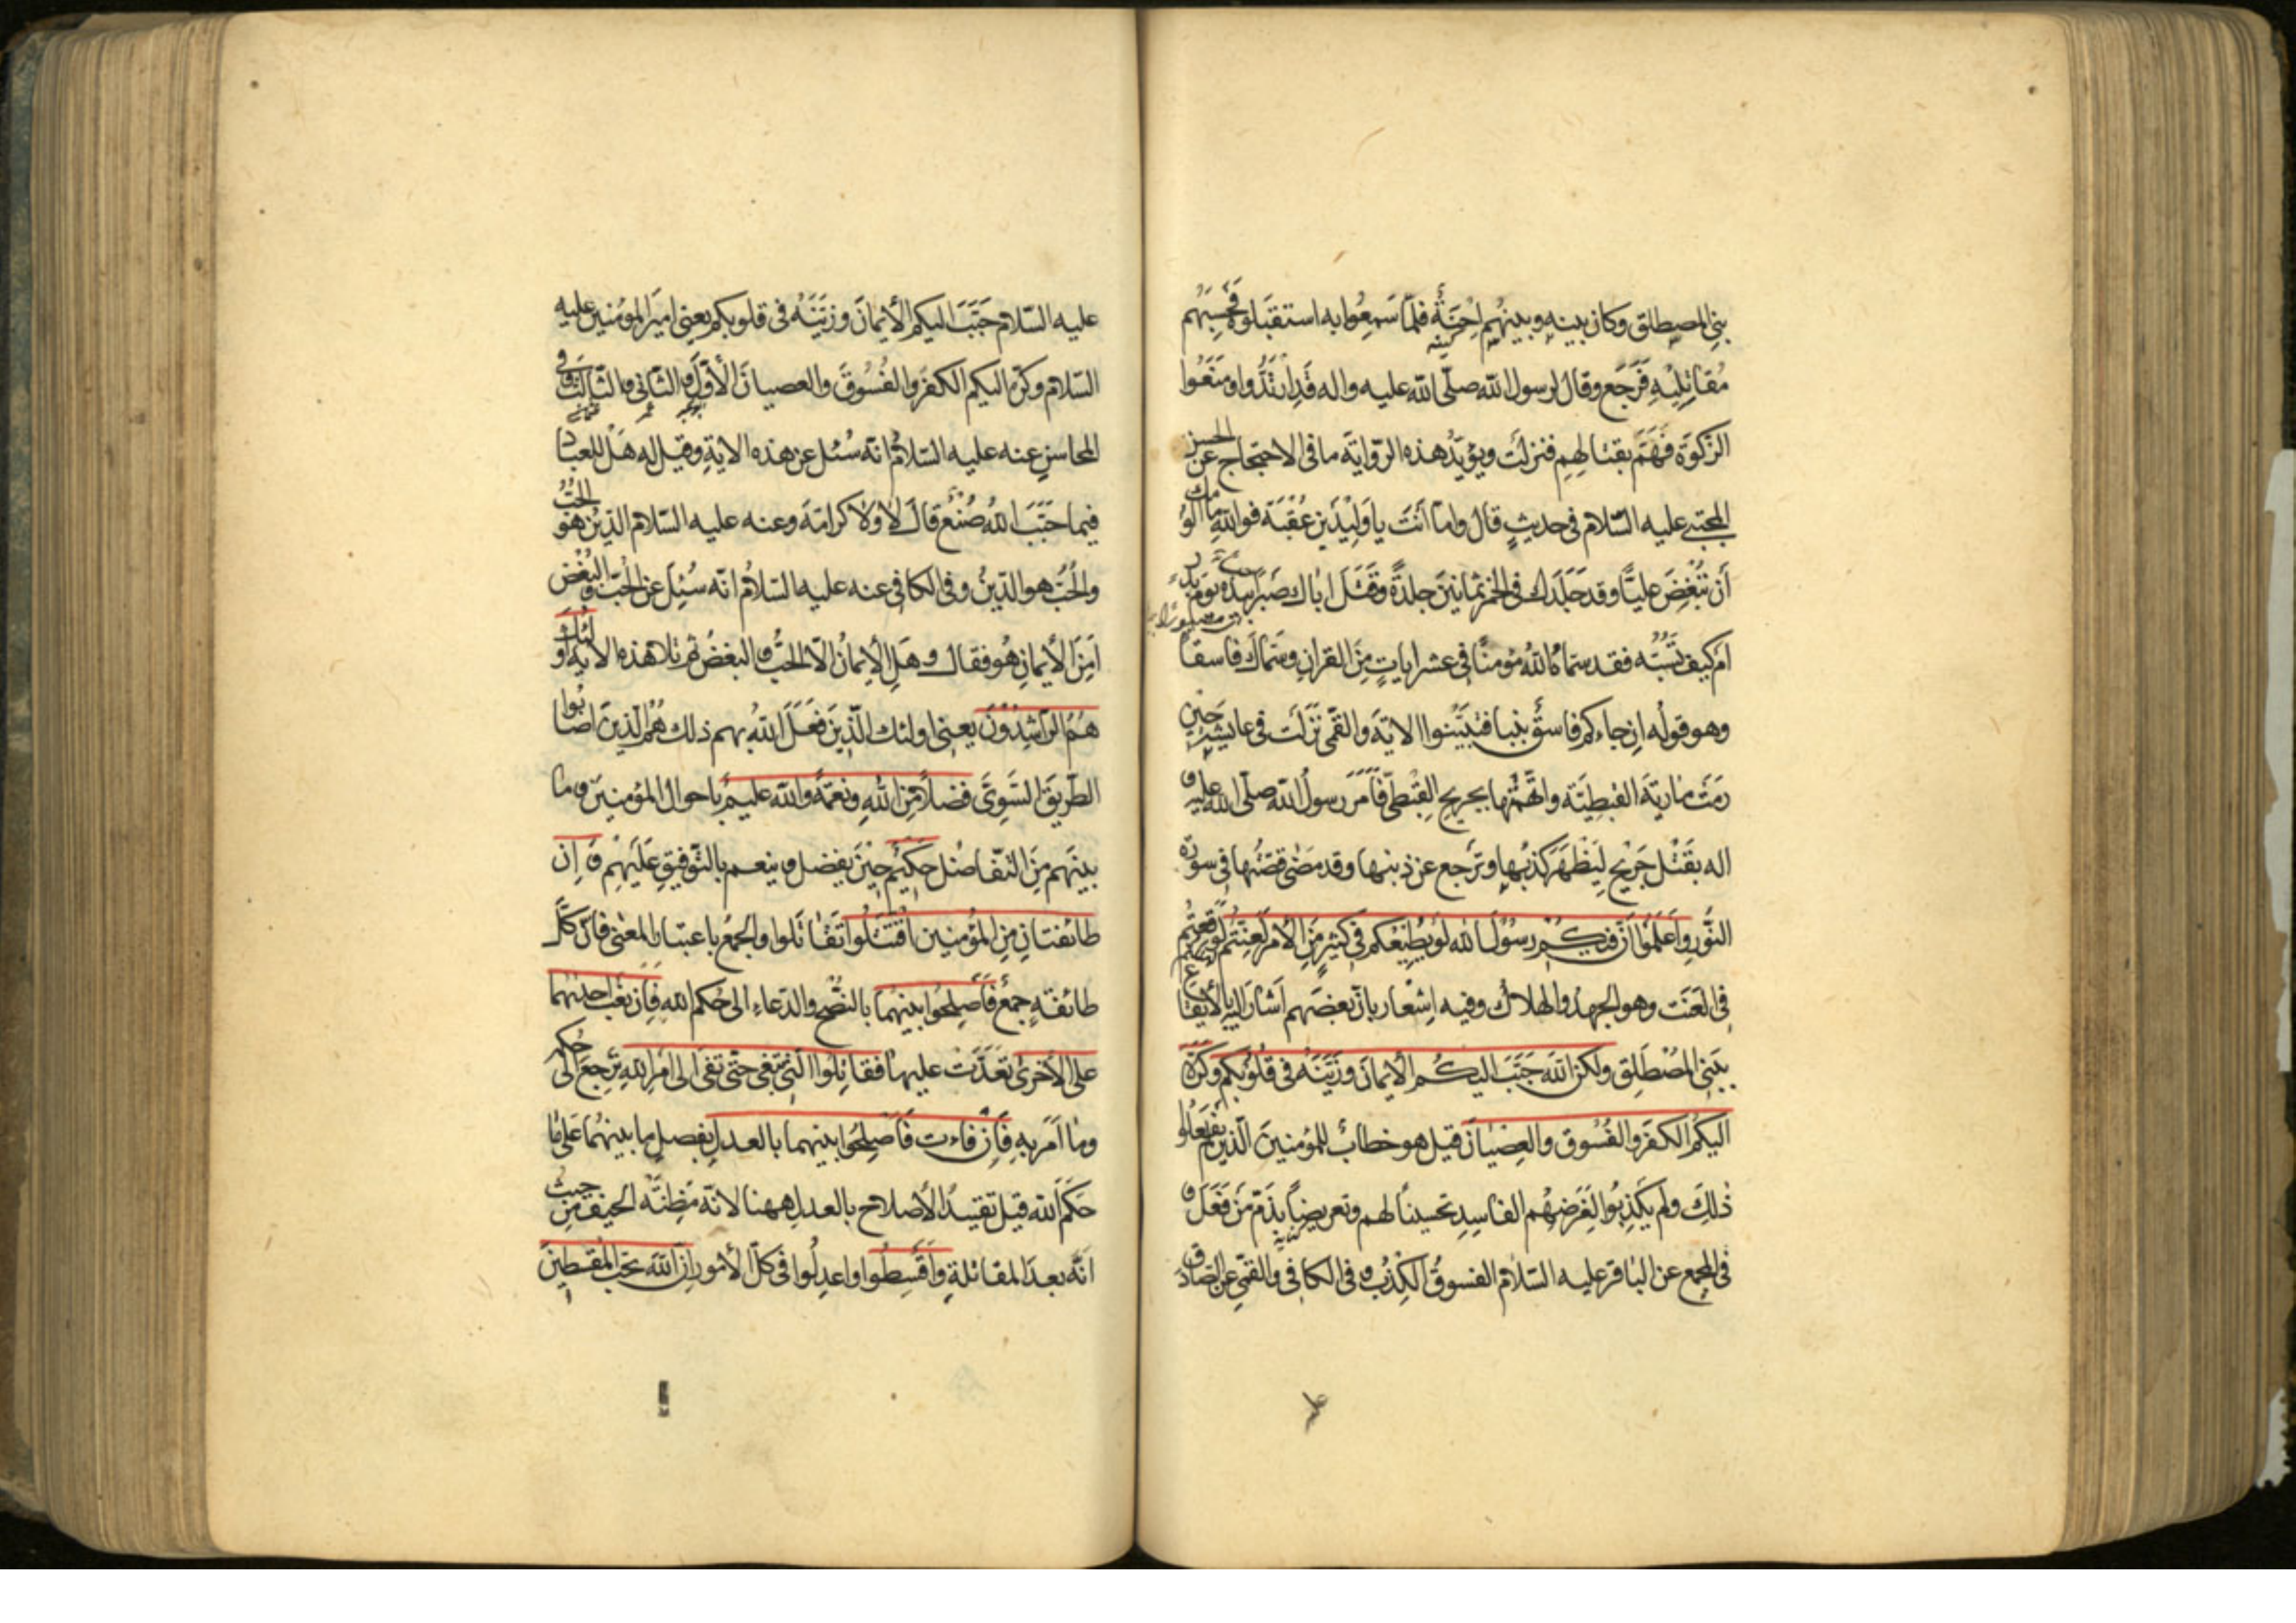 بنی المصطلق وكان بينه وبينهم اِحْنَةٌ فلمّا سَمِعُوا به استقبَلوهُ فحَسِبَهُم
كينه
مُقاتِلِيْهِ فَرَجَع وقال لرسول اللّه صلّى اللّه عليه واله قَدِ ارْتَدُّوا ومَنَعُوا
الزّكوةَ فَهَمَّ بقتالِهِم فنزلَتْ ويؤيّدُ هذه الرّوايةَ ما فى الاحتجاج عن الحسن
المجتبى عليه السّلام فى حديثٍ قال واما اَنْتَ يا وَلِيْدَ بن عُقْبَة فواللّهِ ما اَلُومُك
اَن تُبْغِضَ عليّاً وقد جَلَدَك فى الخمر ثمانينَ جلدةً وقَتَلَ اباك صَبْراً بيَدِه يَومَ بدرٍ
اَم كيف تَسُبُّه فقد سمّاهُ اللّهُ مؤمنًا فى عشر اياتٍ مِنَ القرانِ وسَمّاكَ فاسقاً
وهو قولُه ان جاءكم فاسقٌ بنبا فتَبَيَّنوا الاية والقمّى نَزَلَت فى عايشة حِيْنَ
رَمَتْ مارِيَةَ القبطيّة واتَّهَمَتْها بجريحِ القِبْطىّ فَاَمَرَ رسولُ اللّه صلّى اللّه عليه و
اله بقَتْل جَرِيْحٍ لِيَظْهَرَ كذبُها وتَرجع عن ذنبها وقد مَضٰى قصّتُها فى سورة
النُّورِ واعْلَمُوْا اَنَّ فيكُم رسُوْلَ اللّه لو يُطِيْعُكم فى كثيرٍ مِّنَ الاَمْر لَعَنِتُّم لَوَقَعْتُم
فى العَنَت وهو الجهدُ والهلاك وفيه اِشْعار بانّ بعضَهم اَشارَ اليه بالايقاع
بِبَنِى المُصْطَلِق ولكنَّ اللّهَ حَبَّبَ اليكُم الاِيمانَ وزَيَّنَهُ فى قلُوْبِكم وكَرَّهَ
اليكُم الكفرَ والفُسُوق والعِصْيانَ قيل هو خطابٌ للمؤمنينَ الّذين لم يفعَلُوا
ذٰلِكَ ولم يَكْذِبُوا لِغَرَضِهُم الفاسِدِ تحسيناً لهم وتعريضاً بذمّ مَنْ فَعَلَ و
فى المجمع عن الباقر عليه السّلام الفسوقُ الكِذْبُ و فى الكافى والقمّى عن الصّادق
عليه السّلام حَبَّبَ اليكم الاِيمانَ وزَيَّنَهُ فى قلوبكم يعنى اميرَ المؤمنين عليه
السّلام وكرّه اليكم الكفرَ والفُسُوقَ والعصيانَ الاَوّلَ و الثّانى و الثّالث وفى
المحاسنِ عنه عليه السّلامُ انّه سُئل عن هذه الايةِ وقيل له هَلْ للعبادِ
فيما حَبَّبَ اللّهُ صُنْعٌ قالَ لا ولا كَرامَةَ وعنه عليه السّلام الدّيْنُ هو الحُبُّ
والحُبُّ هو الدّينُ وفى الكافى عنه عليه السّلامُ انّه سُئِلَ عن الحُبّ والبُغْضِ
اَمِنَ الاِيمانِ هُو فقال وهَلِ الاِيمانُ الّا الحُبُّ و البغضُ ثم تلا هذه الاية اولٰئك
هُمُ الرّاشِدُوْنَ يعنى اولئك الّذِينَ فَعَلَ اللّهُ بهم ذلك هُمُ الّذينَ اَصابُوا
الطّريقَ السَّوِىَّ فضلاً مِّنَ اللّهِ ونعمَةً واللّه عليمٌ باحوال المؤمنينَ و ما
بينَهم مِنَ التّفاضُل حَكيْمٌ حِيْنَ يفضل و ينعم بالتّوفيقِ عَلَيهم و اِن
طائفتانِ مِنَ المُؤمِنِينَ اقْتَتَلُوا تَقاتَلوا والجمعُ باعتبار المعنى فانّ كلَّ
طائفةٍ جمعٌ فَاَصْلِحُوا بينَهُما بالنُّصْحِ والدّعاء الى حُكم اللّهِ فَاِن بَغَتْ احدٰيهُما
على الاُخرىٰ تَعَدَّتْ عليها فقاتِلُوا الّتِى تَبْغى حتّى تفىءَ الى اَمْرِ اللّهِ تَرجِعَ الى حُكمِه
وما اَمَرَ به فَاِن فاءَت فَاَصْلِحُوا بينهما بالعدلِ بفصلِ ما بينهُما عَلى ما
حَكَمَ اللّه قيل تقييدُ الاصلاح بالعدلِ ههنا لانّه مَظِنّة الحيف مِن حيثُ
انّه بعدَ المقاتلةِ وَاَقْسِطُوا واعدِلُوا فى كلّ الاُمور اِنَّ اللّهَ يحبّ المُقسِطِينَ